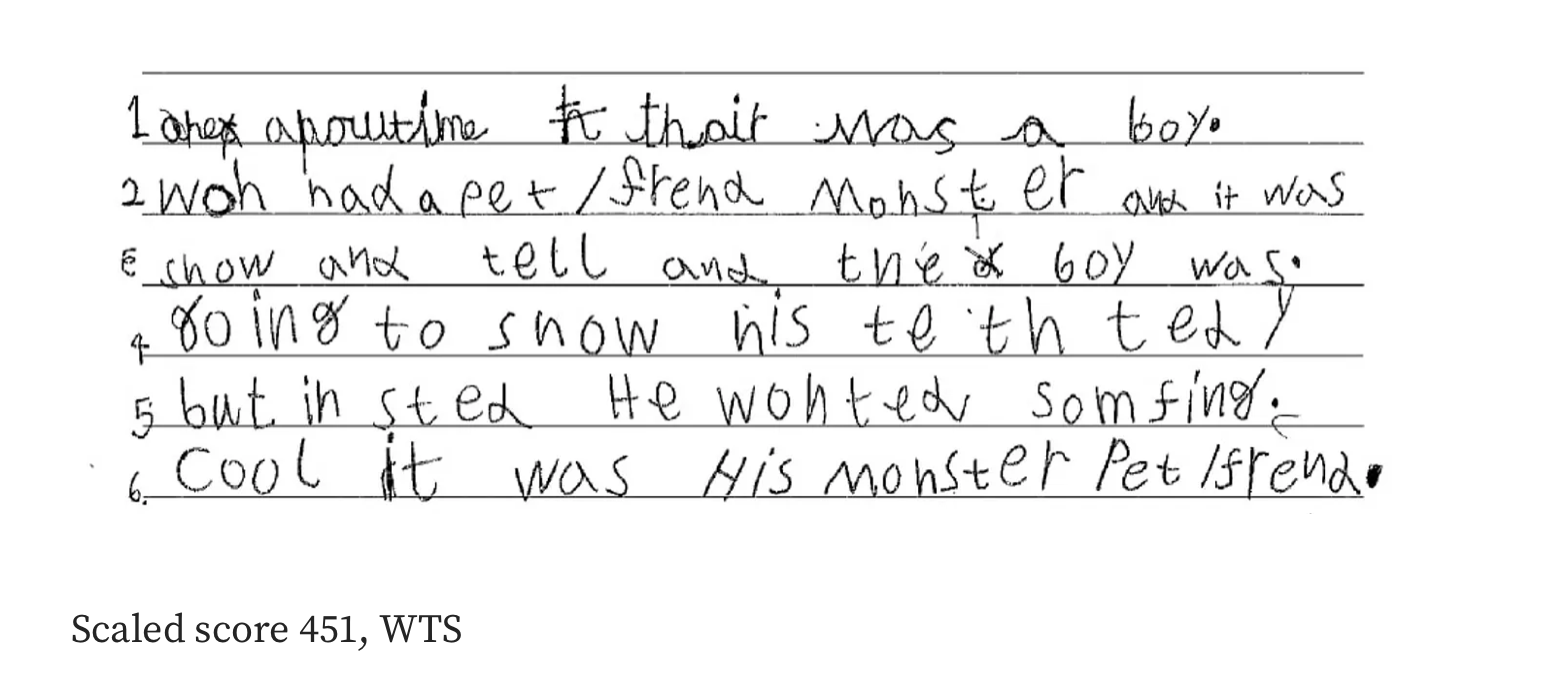 1 onex apowtime thair was a boy.
2 woh had a pet/frend Monster and it was
3 show and tell and the boy was.
4 going to show his te th tedy
5 but in sted He wonted somfing.
6. Cool it was His monster Pet/frend.
Scaled score 451, WTS